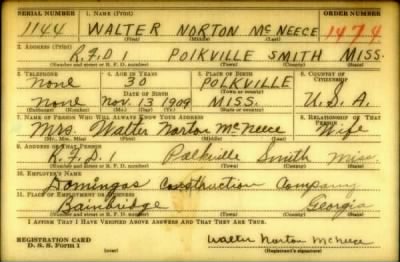 SERIAL NUMBER 1. NAME (Print) ORDER NUMBER
1144 WALTER NORTON McNEECE 1474
(First) (Middle) (Last)
2. ADDRESS (Print)
R.F.D 1 POLKVILLE SMITH MISS.
(Number and street or R. F. D. number) (Town) (County) (State)
3. TELEPHONE 4. AGE IN YEARS 5. PLACE OF BIRTH 6. COUNTRY OF CITIZENSHIP
None 30 POLKVILLE
DATE OF BIRTH (Town or county)
None Nov. 13 1909 MISS. U.S.A.
(Mo.) (Day) (Yr.) (State or country)
7. NAME OF PERSON WHO WILL ALWAYS KNOW YOUR ADDRESS 8. RELATIONSHIP OF THAT PERSON
Mrs. Walter Norton McNeece Wife
(Mr., Mrs., Miss) (First) (Middle) (Last)
9. ADDRESS OF THAT PERSON
R.F.D 1 Polkville Smith Miss
(Number and street or R. F. D. number) (Town) (County) (State)
10. EMPLOYER'S NAME
Domingos Construction Company
11. PLACE OF EMPLOYMENT OR BUSINESS
Bainbridge Georgia
(Number and street or R. F. D. number) (Town) (County) (State)
I AFFIRM THAT I HAVE VERIFIED ABOVE ANSWERS AND THAT THEY ARE TRUE.
REGISTRATION CARD
D. S. S. FORM 1 Walter Norton McNeece
(Registrant's signature)